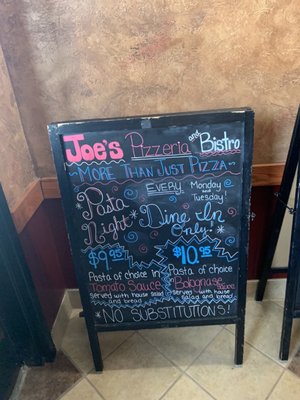 Joe's Pizzeria and Bistro
~MORE THAN JUST PIZZA~
EVERY Monday and Tuesday!
*Pasta Night*
Dine In Only*
$9.95
Pasta of choice in
Tomato Sauce
served with house salad and bread
$10.95
*Pasta of choice with
Bolognase Sauce
served with house salad and bread
*NO SUBSTITUTIONS!*